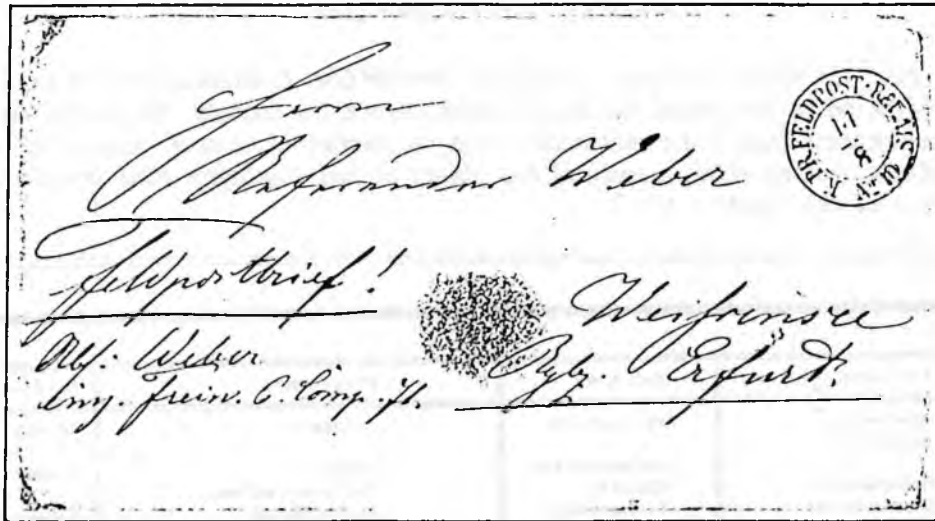 Herrn
Referendar Weber
K.PR.FELDPOST-RELAIS No 10
11
8
Feldpostbrief!
Weissensee
Abs. Weber
Rgbz. Erfurt.
Einj. freiw. 6. Comp. 71.